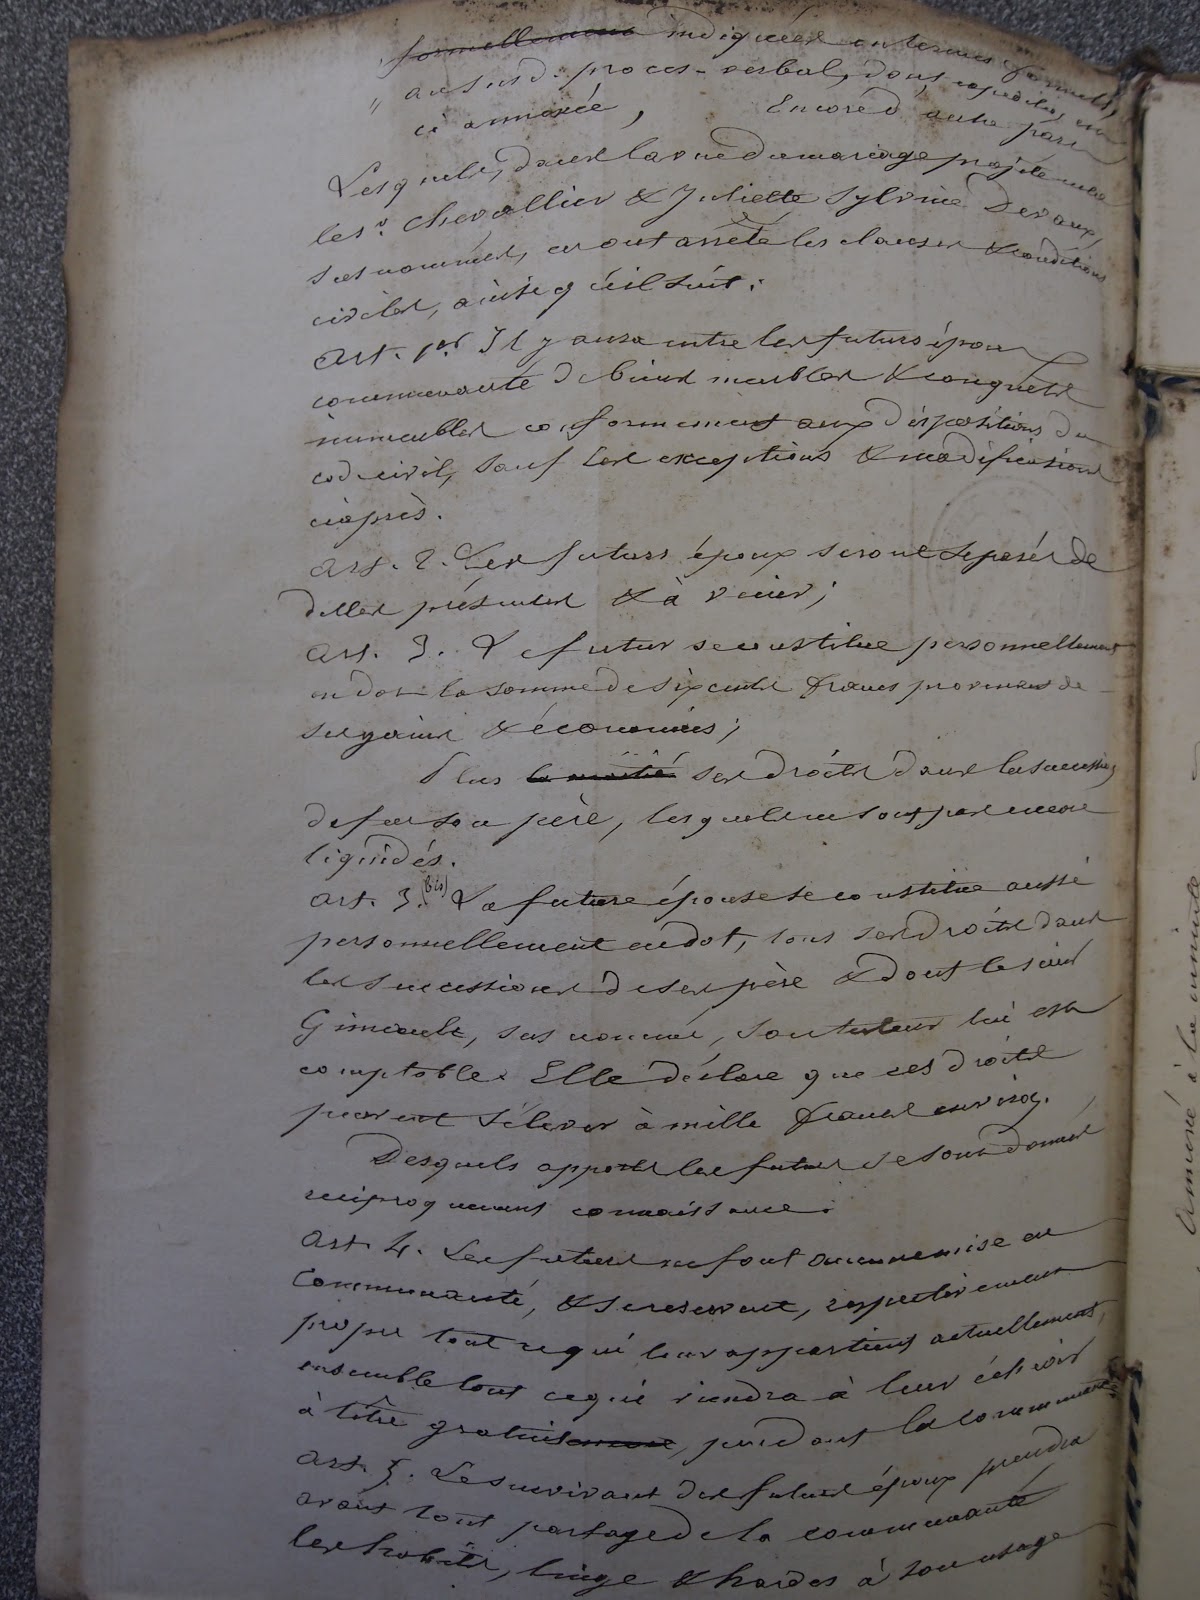 formellement indiquées en termes formels,
" au susd. procès-verbal, dont expédition est
ci annexée, Encore d'autre part
Lesquels, dans la vue du mariage projeté entre
le sr. Chevallier & Juliette Sylvine Devaux,
sus nommés, en ont arrêté les clauses & conditions
civiles, ainsi qu'il suit :
Art. 1er. Il y aura entre les futurs époux
communauté de biens meubles & conquets
immeubles conformément aux dispositions du
code civil, sauf les exceptions & modifications
ciaprès.
Art. 2. Les futurs époux seront séparés de
dettes présentes & à venir ;
Art. 3. Le futur se constitue personnellement
en dot la somme de six cents francs provenant de
ses gains & économies ;
Plus la moitié ses droits dans la succession
de feu son père, lesquels ne sont pas encore
liquidés.
Art. 3. (bis) La future épouse se constitue aussi
personnellement en dot, tous ses droits dans
les successions de ses père & dont le sieur
Gimault, sus nommé, son tuteur lui est
comptable. Elle déclare que ces droits
peuvent s'élever à mille francs environ.
Desquels apports les futurs se sont donnés
réciproquement connaissance.
Art. 4. Les futurs ne font aucune mise en
communauté, & se réservent, respectivement
propre tout ce qui leur appartient actuellement,
ensemble tout ce qui viendra à leur échoir
à titre gratuitement, pendant la communauté
Art. 5. Le survivant des futurs époux prendra
avant tout partage de la communauté
les habits, linge & hardes à son usage
Annexé à la minute